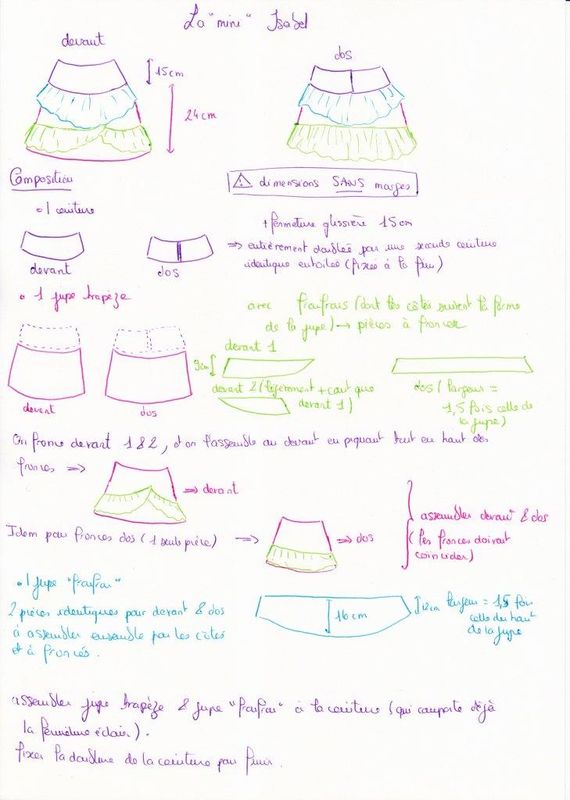 La "mini" Isabel
devant
dos
15cm
24cm
Composition
⚠ dimensions SANS marges
• 1 ceinture
+ fermeture glissière 15cm
⇒ entièrement doublée par une seconde ceinture
identique entoilée (fixée à la fin)
devant
dos
• 1 jupe trapèze
avec froufrous (dont les côtés suivent la forme
de la jupe) → pièces à froncer
devant 1
9cm
devant 2 (légèrement + court que
devant 1)
dos (largeur =
1,5 fois celle de
la jupe)
devant
dos
On fronce devant 1 & 2, et on l'assemble au devant en piquant tout en haut des
fronces ⇒
⇒ devant
Idem pour fronces dos (1 seule pièce) ⇒
⇒ dos
assembler devant & dos
(les fronces doivent
coincider)
• 1 jupe "froufrou"
2 pièces identiques pour devant & dos
à assembler ensemble par les côtés
et à froncer.
16cm
12cm
largeur = 1,5 fois
celle du haut
de la jupe
assembler jupe trapèze & jupe "froufrou" à la ceinture (qui comporte déjà
la fermeture éclair).
fixer la doublure de la ceinture pour finir.